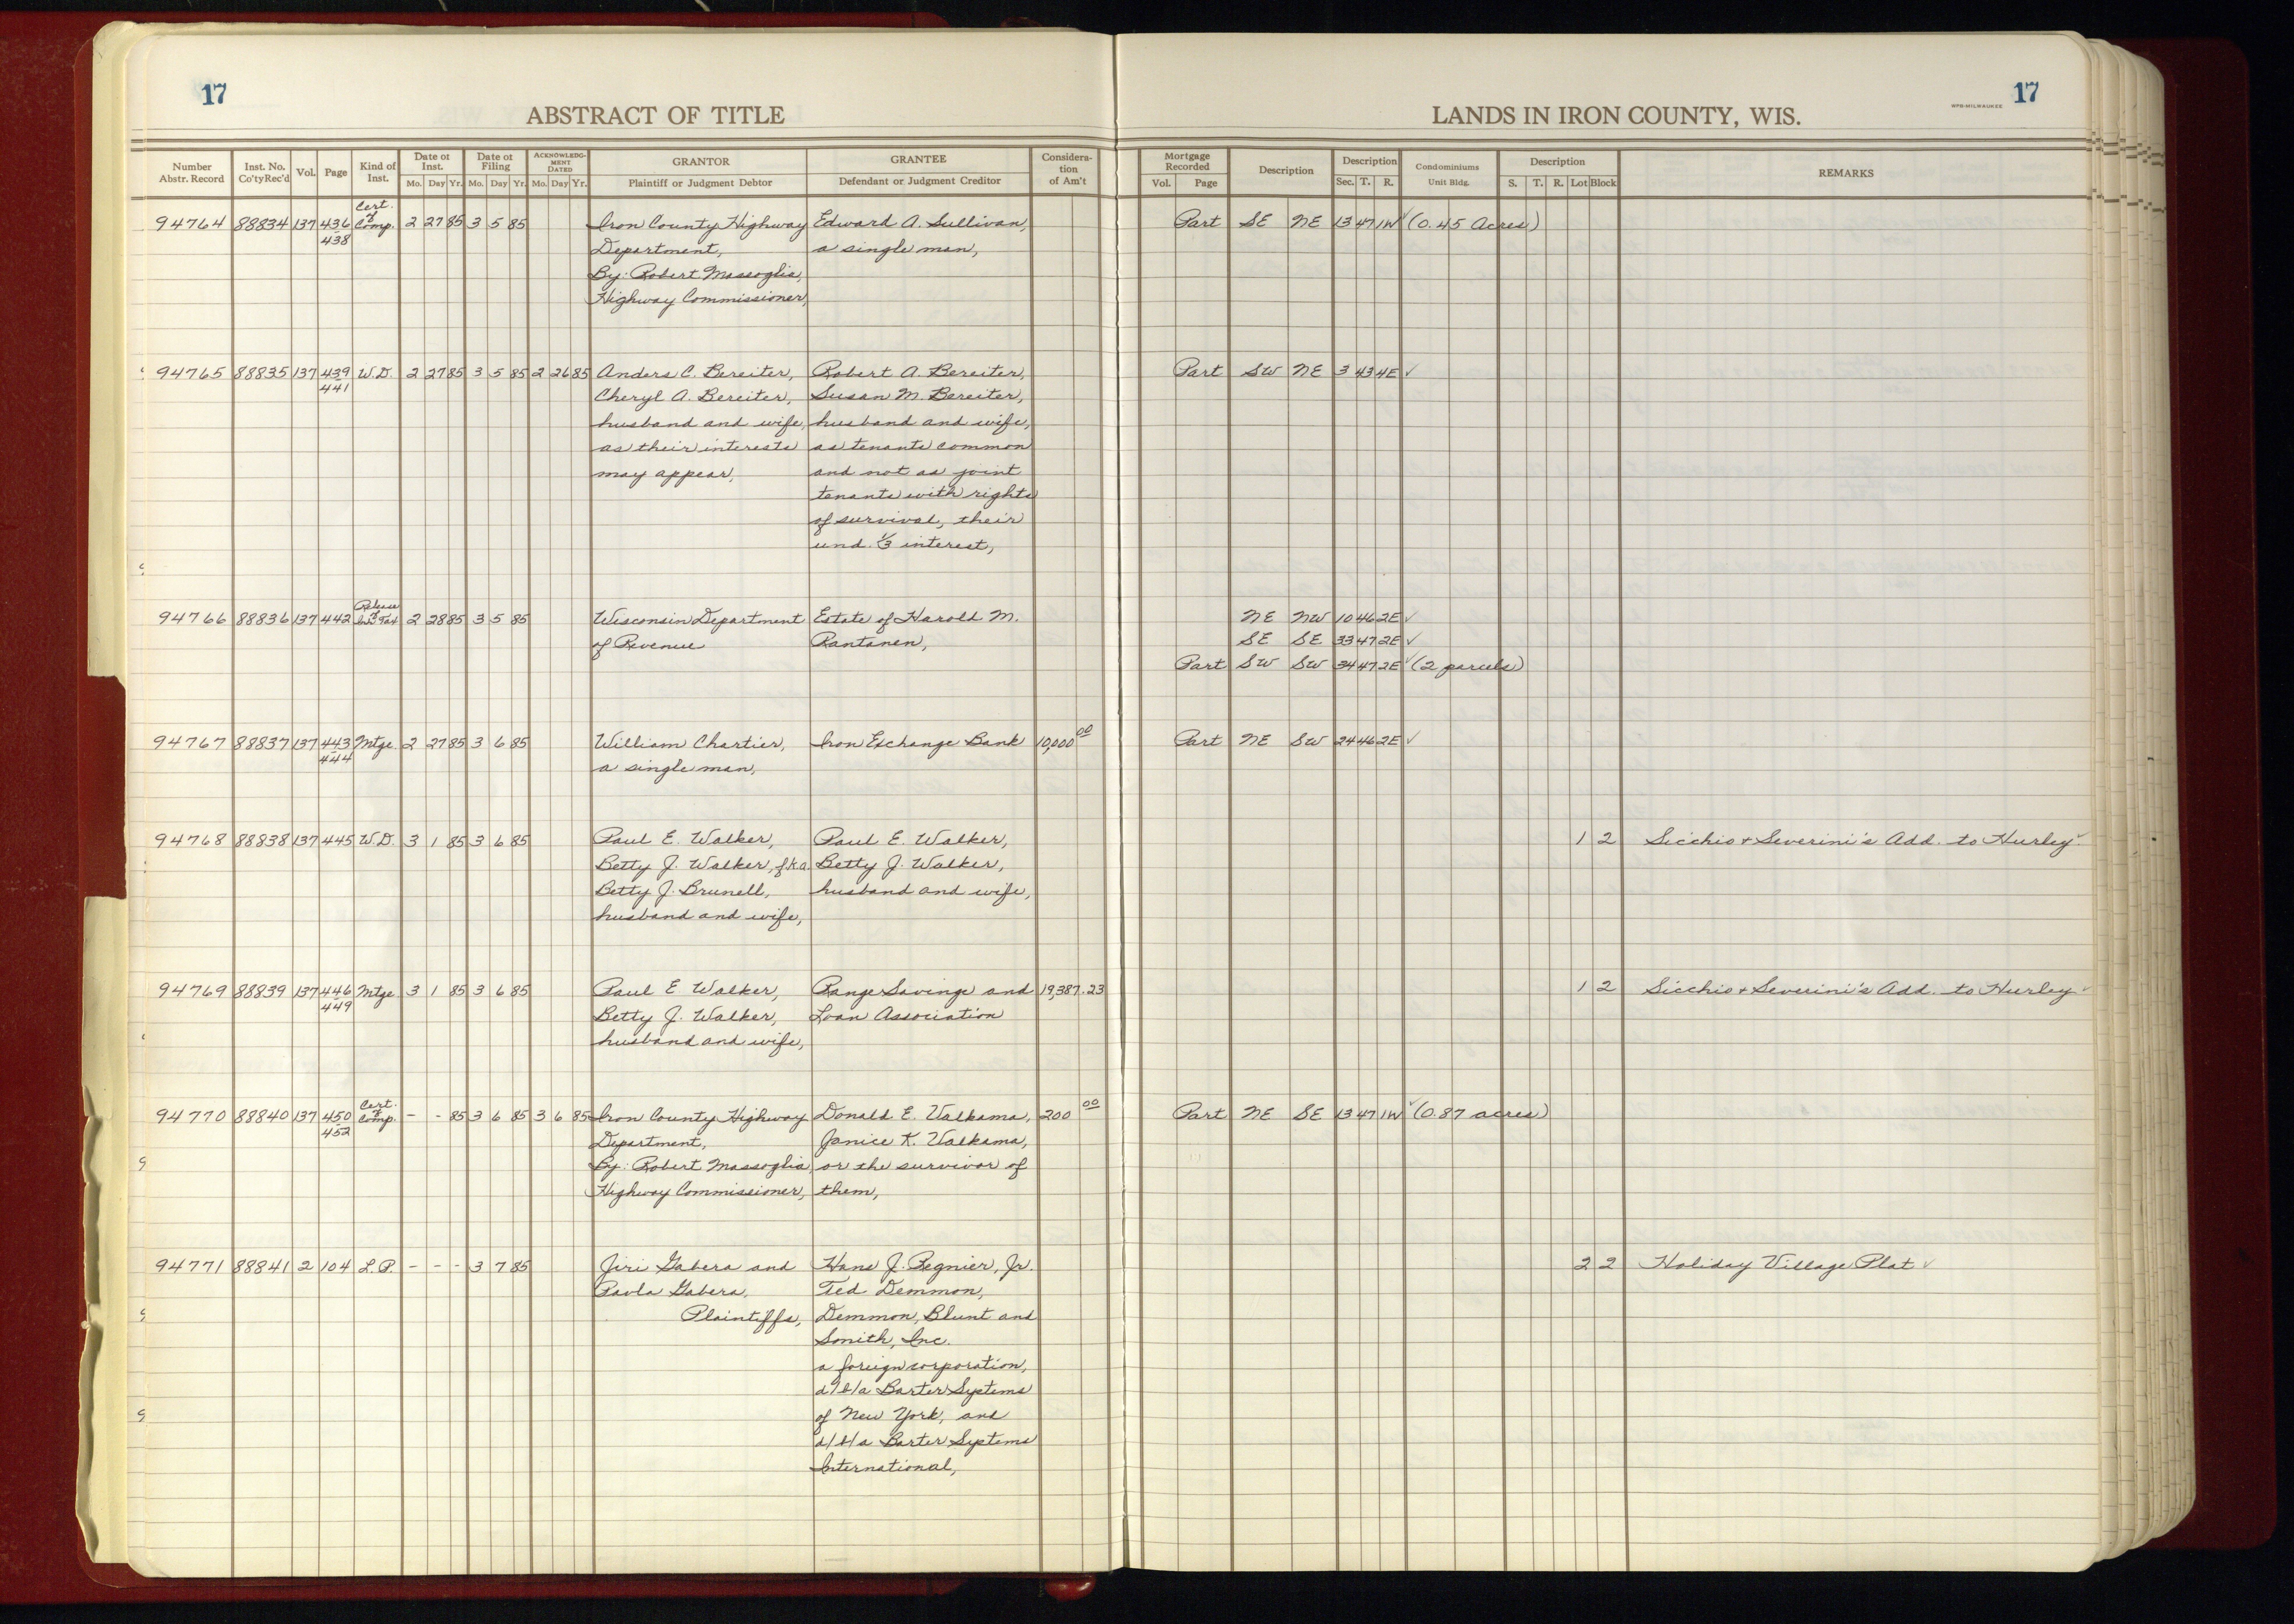 17
ABSTRACT OF TITLE
Number Abstr. Record Inst. No. Co'ty Rec'd Vol. Page Kind of Inst. Date of Inst. Mo. Day Yr. Date of Filing Mo. Day Yr. ACKNOWLEDGMENT DATED Mo. Day Yr. GRANTOR Plaintiff or Judgment Debtor GRANTEE Defendant or Judgment Creditor Consideration of Am't
Cert. of
94764 88834 137 436 Comp. 2 27 85 3 5 85 Iron County Highway Edward A. Sullivan,
438 Department, a single man,
By: Robert Massoglia,
Highway Commissioner,
94765 88835 137 439 W.D. 2 27 85 3 5 85 2 26 85 Anders C. Bereiter, Robert A. Bereiter,
441 Cheryl A. Bereiter, Susan M. Bereiter,
husband and wife, husband and wife,
as their interests as tenants common
may appear, and not as joint
tenants with rights
of survival, their
und. 1/3 interest,
Release of
94766 88836 137 442 2 28 85 3 5 85 Wisconsin Department Estate of Harold M.
of Revenue Rantanen,
94767 88837 137 443 Mtge. 2 27 85 3 6 85 William Chartier, Iron Exchange Bank 10,000 00
444 a single man,
94768 88838 137 445 W.D. 3 1 85 3 6 85 Paul E. Walker, Paul E. Walker,
Betty J. Walker, f.k.a. Betty J. Walker,
Betty J. Brunell, husband and wife,
husband and wife,
94769 88839 137 446 Mtge 3 1 85 3 6 85 Paul E. Walker, Range Savings and 19,387.23
449 Betty J. Walker, Loan Association
husband and wife,
Cert. of
94770 88840 137 450 Comp. - - 85 3 6 85 3 6 85 Iron County Highway Donald E. Valkama, 200 00
452 Department, Janice K. Valkama,
By: Robert Massoglia, or the survivor of
Highway Commissioner, them,
94771 88841 2 104 L.P. - - - 3 7 85 Jiri Gabera and Hans J. Regnier, Jr.
Pavla Gabera, Ted Demmon,
Plaintiffs, Demmon, Blunt and
Smith, Inc.
a foreign corporation,
d/b/a Barter Systems
of New York, and
d/b/a Barter Systems
International,
WPB-MILWAUKEE 17
LANDS IN IRON COUNTY, WIS.
Mortgage Recorded Vol. Page Description Description Sec. T. R. Condominiums Unit Bldg. Description S. T. R. Lot Block REMARKS
Part SE NE 13 47 1W ✓ (0.45 Acres)
Part SW NE 3 43 4E ✓
NE NW 10 46 2E ✓
SE SE 33 47 2E ✓
Part SW SW 34 47 2E ✓ (2 parcels)
Part NE SW 24 46 2E ✓
1 2 Sicchio + Severini's Add. to Hurley ✓
1 2 Sicchio + Severini's Add. to Hurley ✓
Part NE SE 13 47 1W ✓ (0.87 acres)
2 2 Holiday Village Plat ✓